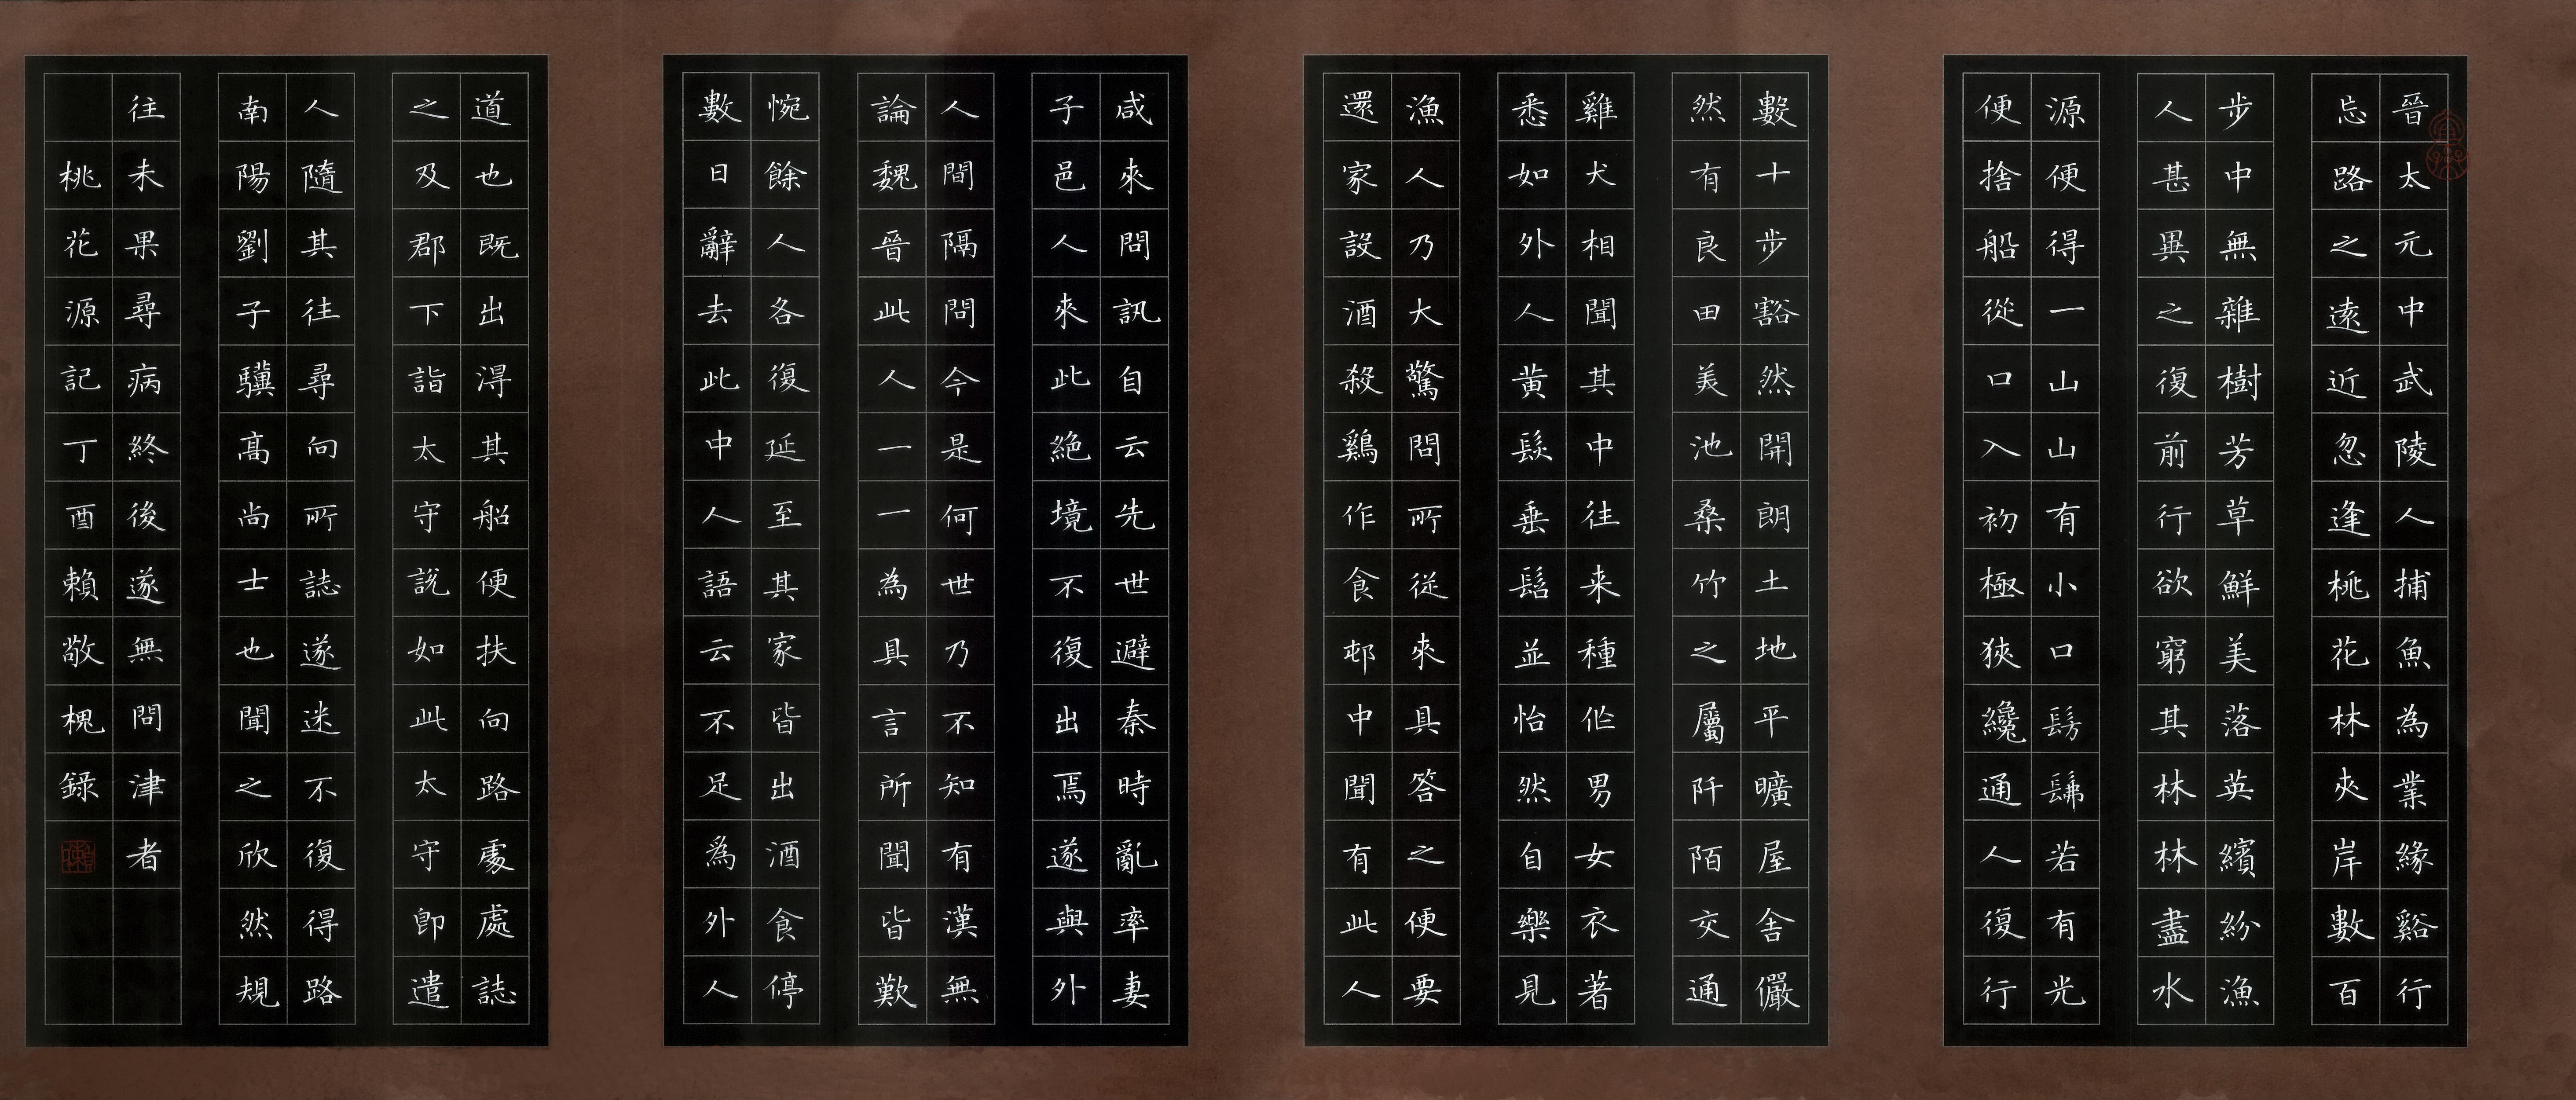 晉太元中武陵人捕魚為業緣谿行
忘路之遠近忽逢桃花林夾岸數百
步中無雜樹芳草鮮美落英繽紛漁
人甚異之復前行欲窮其林林盡水
源便得一山山有小口髣髴若有光
便捨船從口入初極狹纔通人復行
數十步豁然開朗土地平曠屋舍儼
然有良田美池桑竹之屬阡陌交通
雞犬相聞其中往来種作男女衣著
悉如外人黃髮垂髫並怡然自樂見
漁人乃大驚問所從來具答之便要
還家設酒殺鷄作食邨中聞有此人
咸來問訊自云先世避秦時亂率妻
子邑人來此絕境不復出焉遂與外
人間隔問今是何世乃不知有漢無
論魏晉此人一一為具言所聞皆歎
惋餘人各復延至其家皆出酒食停
數日辭去此中人語云不足為外人
道也既出得其船便扶向路處處誌
之及郡下詣太守說如此太守即遣
人隨其往尋向所誌遂迷不復得路
南陽劉子驥高尚士也聞之欣然規
往未果尋病終後遂無問津者
桃花源記丁酉賴敬槐錄